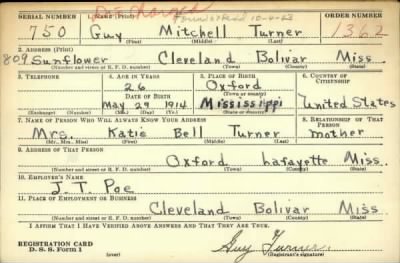 SERIAL NUMBER 1. NAME (Print) ORDER NUMBER
Discharged
10-4-63
750 Guy Mitchell Turner 1362
(First) (Middle) (Last)
2. ADDRESS (Print)
809 Sunflower Cleveland Bolivar Miss.
(Number and street or R. F. D. number) (Town) (County) (State)
3. TELEPHONE 4. AGE IN YEARS 5. PLACE OF BIRTH 6. COUNTRY OF CITIZENSHIP
26 Oxford
DATE OF BIRTH (Town or county)
May 29 1914 Mississippi United States
(Exchange) (Number) (Mo.) (Day) (Yr.) (State or country)
7. NAME OF PERSON WHO WILL ALWAYS KNOW YOUR ADDRESS 8. RELATIONSHIP OF THAT PERSON
Mrs. Katie Bell Turner mother
(Mr., Mrs., Miss) (First) (Middle) (Last)
9. ADDRESS OF THAT PERSON
Oxford Lafayette Miss.
(Number and street or R. F. D. number) (Town) (County) (State)
10. EMPLOYER'S NAME
J. T. Poe
11. PLACE OF EMPLOYMENT OR BUSINESS
Cleveland Bolivar Miss
(Number and street or R. F. D. number) (Town) (County) (State)
I AFFIRM THAT I HAVE VERIFIED ABOVE ANSWERS AND THAT THEY ARE TRUE.
REGISTRATION CARD
D. S. S. Form 1 (over) Guy Turner
(Registrant's signature)